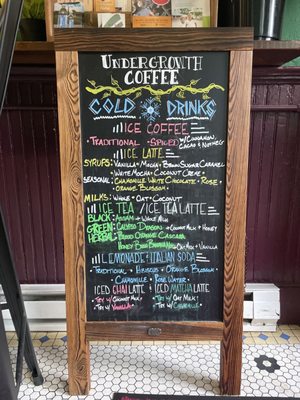 UNDERGROWTH
COFFEE
COLD DRINKS
ICE COFFEE
TRADITIONAL - SPICED W/CINNAMON,
CACAO & NUTMEG
ICE LATTE
SYRUPS: VANILLA • MOCHA • BROWN SUGAR CARAMEL
WHITE MOCHA • COCONUT CREME
SEASONAL: CHAMOMILE WHITE CHOCOLATE • ROSE •
ORANGE BLOSSOM
MILKS: WHOLE • OAT • COCONUT
ICE TEA / ICE TEA LATTE
BLACK: ASSAM WHOLE MILK
GREEN: COCONUT MILK • HONEY
HERBAL: BLOOD ORANGE CASCARA
HONEY BUSH OAT MILK • VANILLA
LEMONADE • ITALIAN SODA
TRADITIONAL • HIBISCUS • ORANGE BLOSSOM
CHAMOMILE • ROSE WATER
ICED CHAI LATTE ICED MATCHA LATTE
TRY W/ COCONUT MILK TRY W/ OAT MILK
TRY W/ VANILLA TRY W/ CHAMOMILE